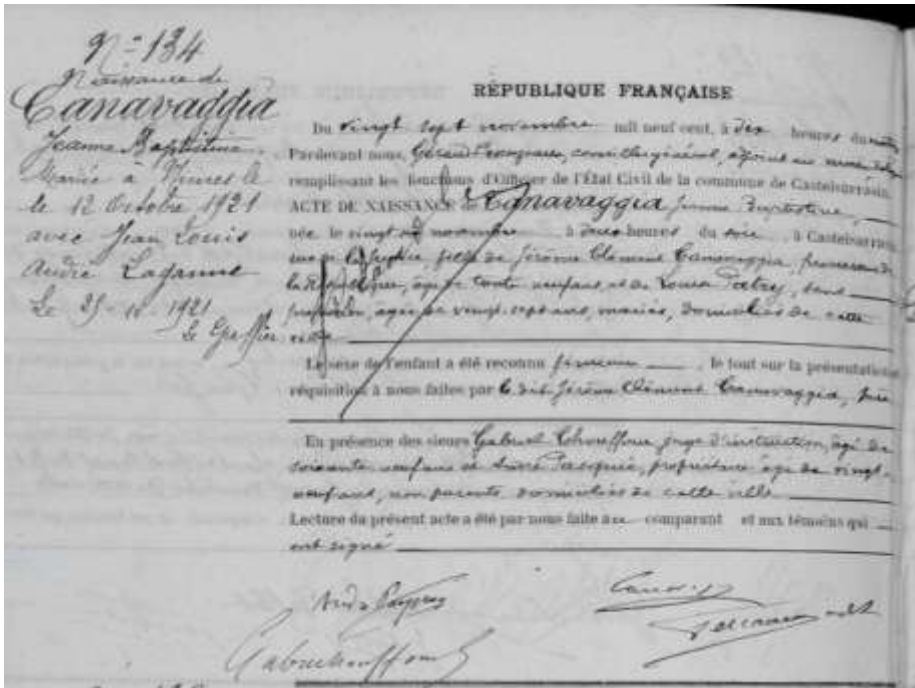 N° 134
Naissance de
Canavaggia
Jeanne Baptistine
Mariée à Nimes le
le 12 Octobre 1921
avec Jean Louis
André
Le 25-10-1921
Le Greffier
RÉPUBLIQUE FRANÇAISE
Du vingt sept novembre mil neuf cent, à dix heures du matin
Pardevant nous, Gérand conseiller général, adjoint au maire
remplissant les fonctions d'Officier de l'État Civil de la commune de Castelsarrasin.
ACTE DE NAISSANCE de Canavaggia Jeanne Baptistine,
née le vingt novembre à heures du soir, à Castelsarrasin
fille de Jérôme Clément Canavaggia, procureur de
la République, âgé de trente neuf ans et de Louise Patry, sans
profession, âgée de vingt-sept ans, mariés, domiciliés de cette
ville
Le sexe de l'enfant a été reconnu féminin, le tout sur la présentation
réquisition à nous faites par le dit Jérôme Clément Canavaggia, père
En présence des sieurs Gabriel juge d'instruction, âgé de
soixante neuf ans et André propriétaire âgé de vingt-
neuf ans, non parents domiciliés de cette ville
Lecture du présent acte a été par nous faite au comparant et aux témoins qui
ont signé